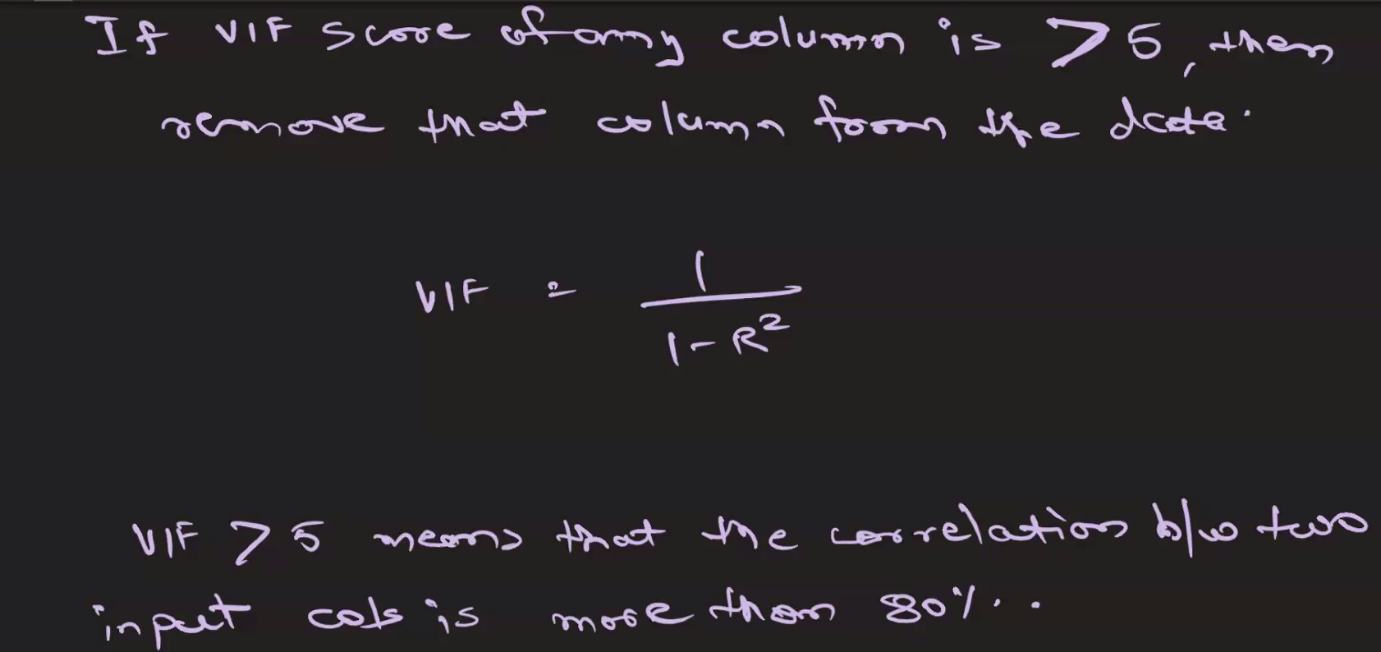 If VIF score of any column is > 5, then
remove that column from the data.
VIF = 1 / (1 - R²)
VIF > 5 means that the correlation b/w two
input cols is more than 80%..